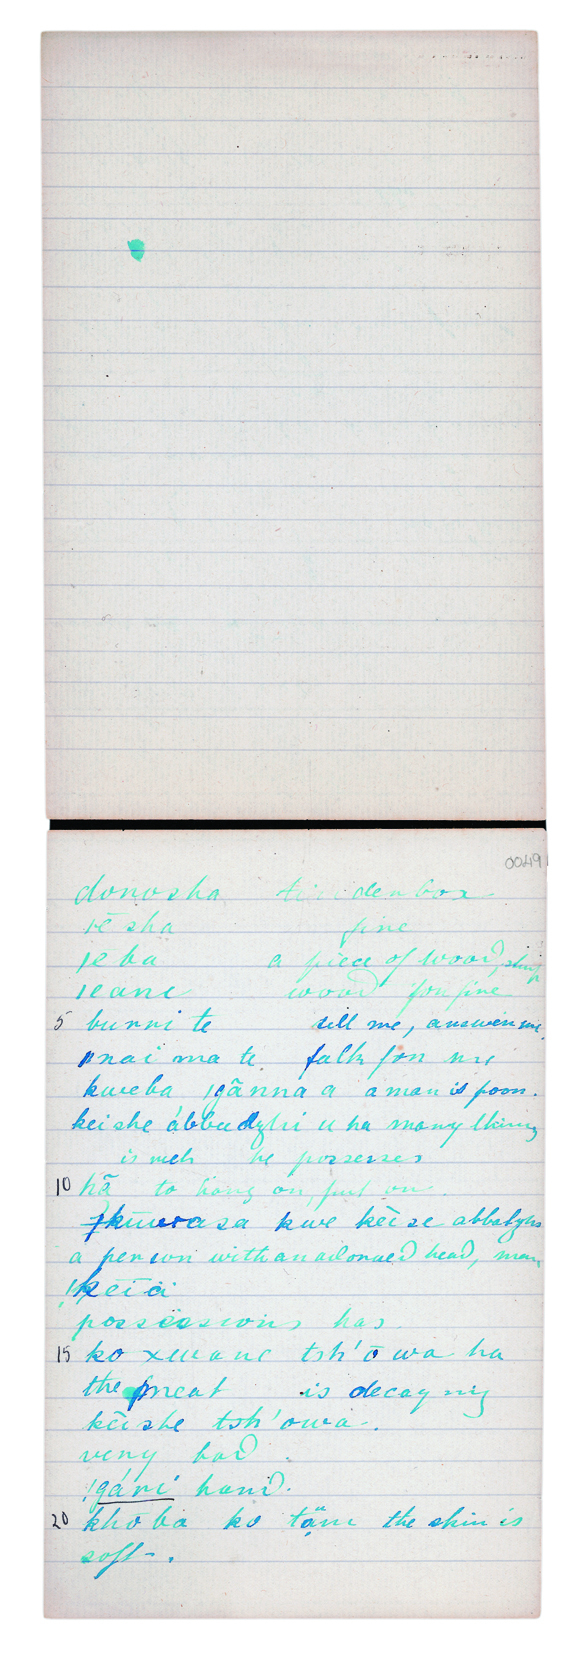 0049
donosha tinderbox
ıē sha fire
ıe ba a piece of wood,
ıeane wood for fire
5 burri te tell me, answer me,
ınai ma te. talk for me
kweba ıgãnna a a man is poor.
keishe ábbudzhi u ha many things
is rich he possesses
10 hã to hang on, put on.
kūwra sa kwe kēi se
a person with an adorned head, many
kēi a
possessions has.
15 ko xwane tsh'ō wa ha
the meat is decaying
kēishe tsh'owa.
very bad.
!gári hard.
20 khōba ko tãm the skin is
soft.